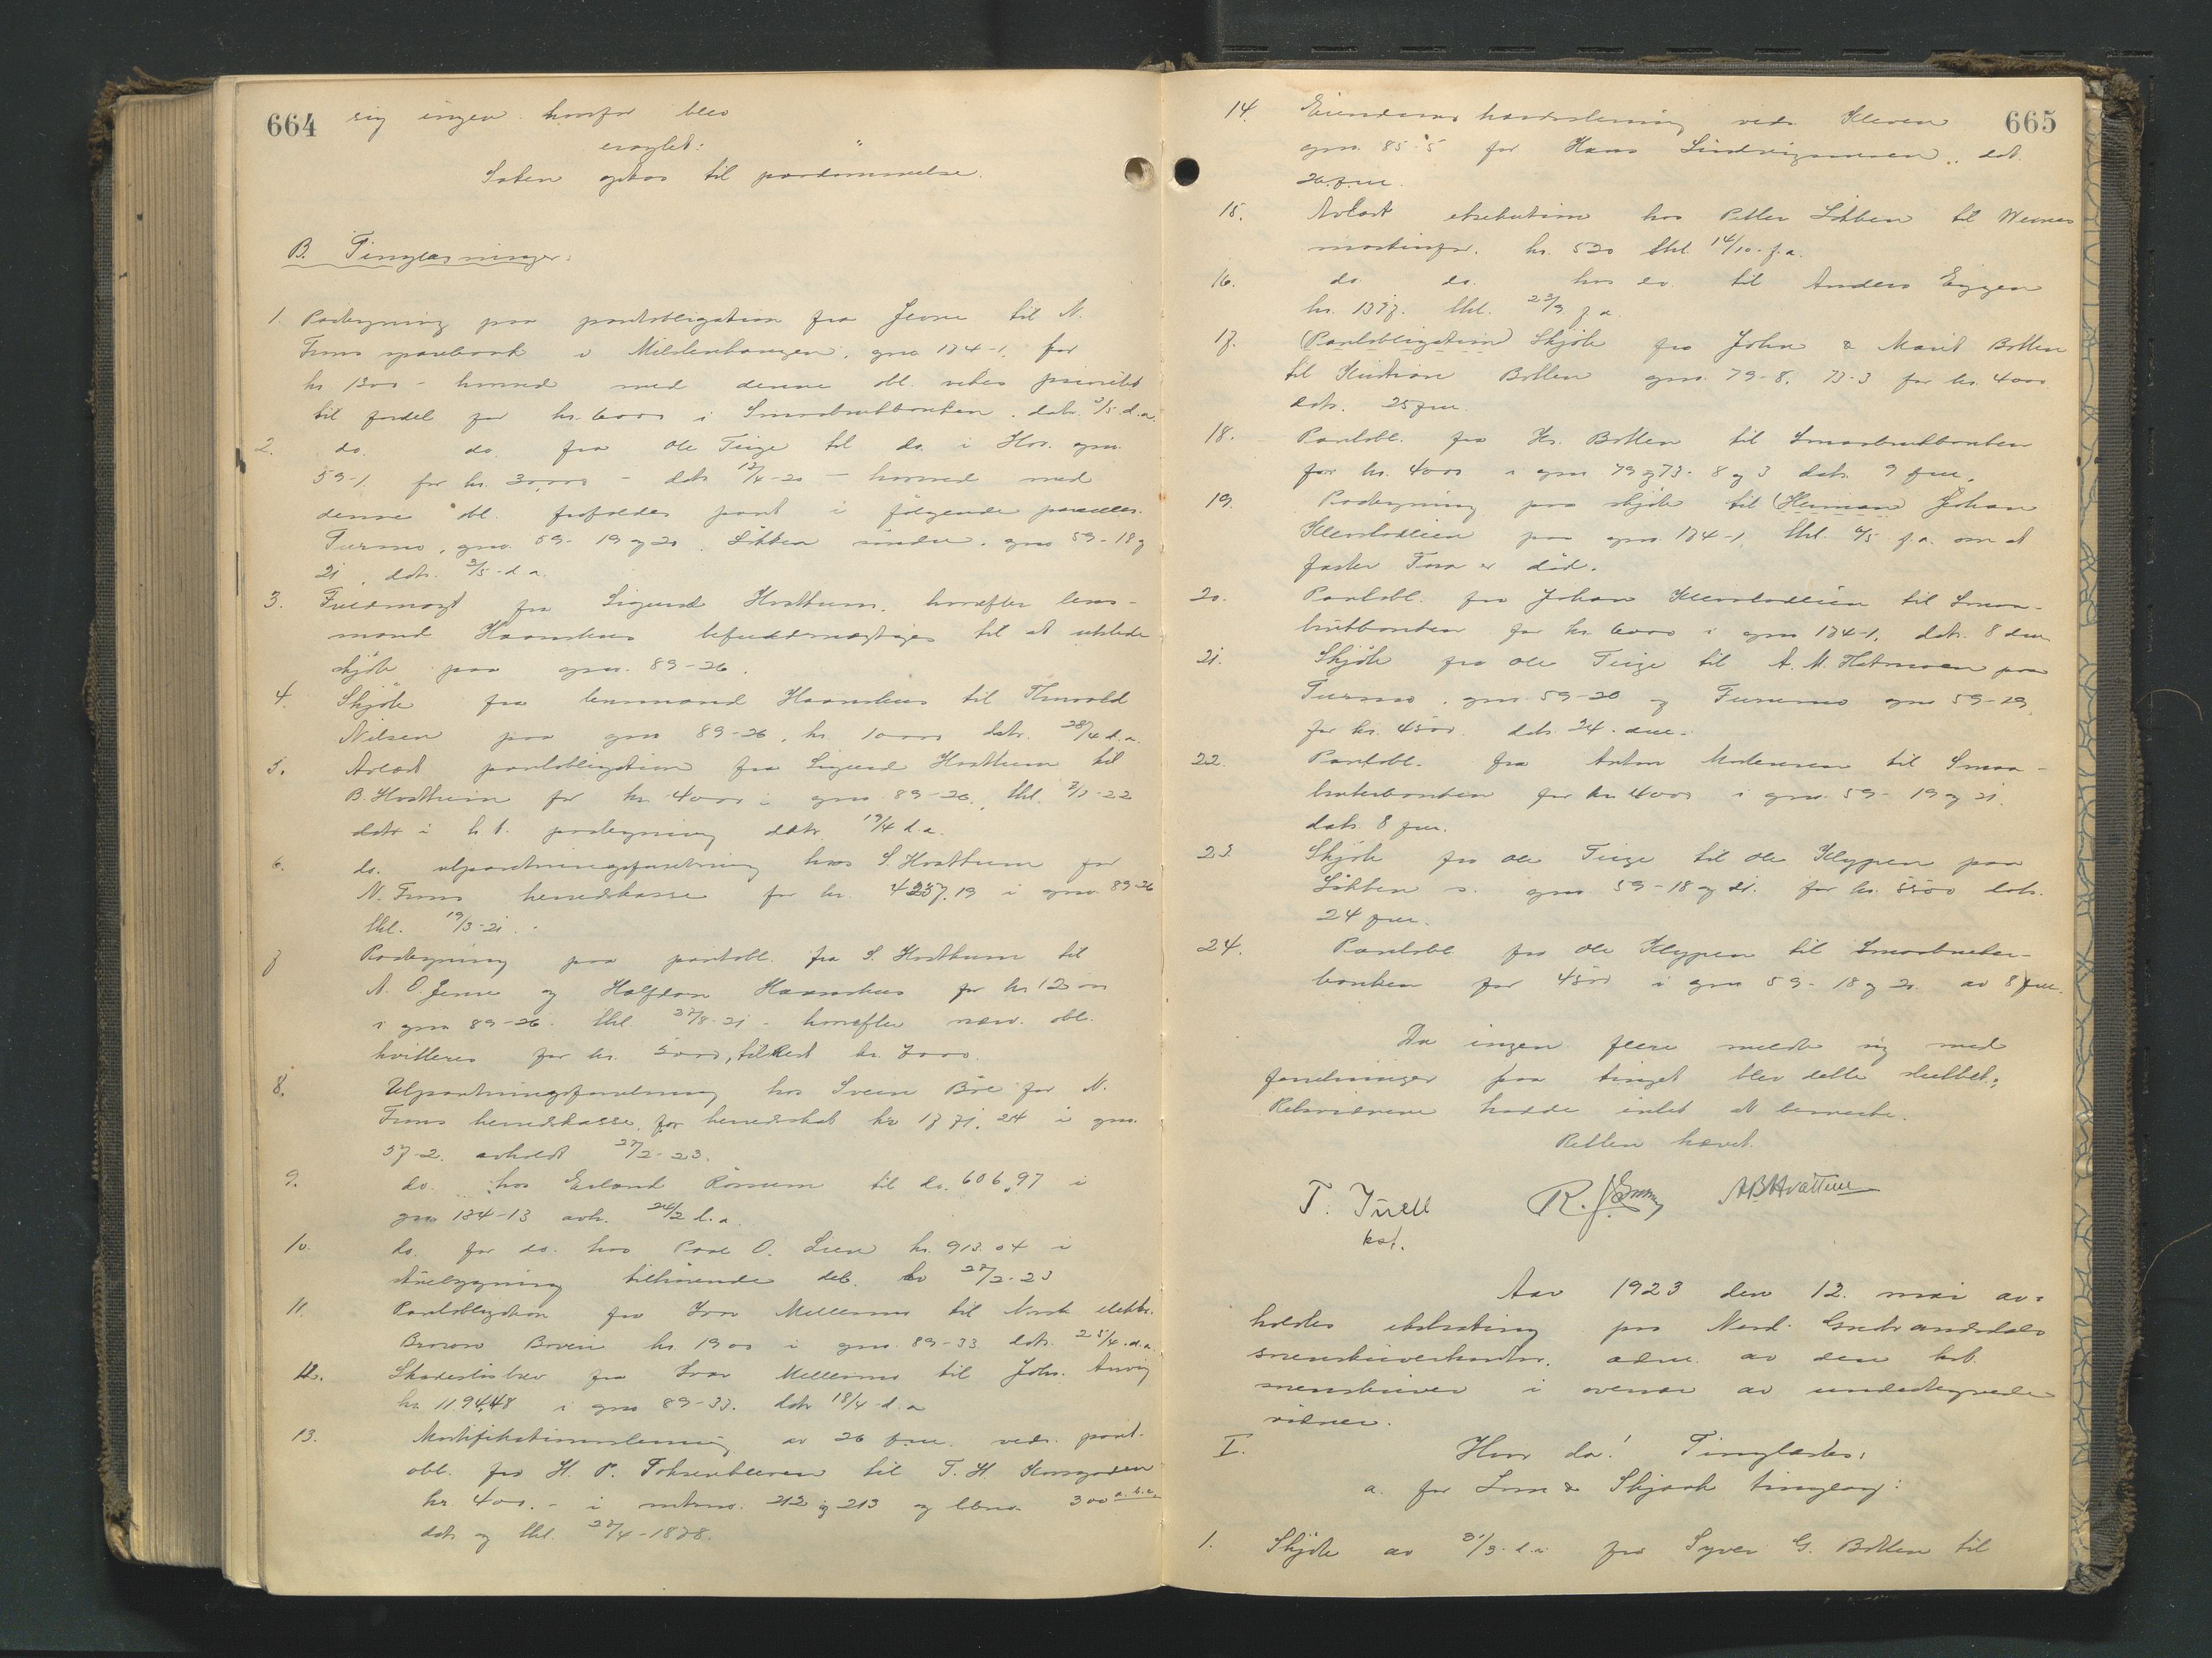 664
sig ingen hvorfor blev
avsagt:
Saken optas til paadømmelse.
B. Tinglæsninger:
1. Paategning paa pantobligation fra Jevne til N.
Frons sparebank i gno 184-1, for
kr. 1200 - hvorved med denne obl. vikes prioritet
til fordel for kr. 6000 i Smaabrukbanken. dat. 3/5 d.a.
2. do. do. fra Ole Teige til do. i Hov. gno.
59-1. for kr. 30,000 - dat. 13/4-20 - hvorved med
denne obl. frafaldes pant i følgende parceller.
Furmo, gno. 59-19 og 20. Løkken søndre. gno 59-18 og
21, dat. 3/5 d.a.
3. Fuldmagt fra Sigurd Hvattum. hvorefter lens-
mand Haanshus befuldmægtiges til at utstede
skjøte paa gno. 89-26.
4. Skjøte fra lensmand Haanshus til Thorvald
Nilsen paa gno 89-26, kr. 10000 dat. 28/4 d.a.
5. Avlæst pantobligation fra Sigurd Hvattum til
B. Hvattum for kr. 4000 i gno 89-26, thl. 3/1-22
dat i h.t. paategning dat. 19/4 d.a.
6. do. utpantningsforretning hos S. Hvattum for
N. Frons herredskasse for kr. 4237,19 i gno. 89-26
thl. 19/3-21.
7 Paategning paa pantobl. fra S. Hvattum til
A. O. Jevne og Halfdan Haanshus for kr 12000
i gno 89-26. thl. 27/8-21 - hvorefter obl.
kvitteres for kr. 5000, tilRest kr. 7000.
8. Utpantningsforretning hos Svein Bøe for N.
Frons herredskasse, for herredsskat kr 1771,24 i gno.
57-2. avholdt 27/2-23.
9. do. hos Erland Rønnum til do. 606,97 i
gno 184-13 avh. 24/2 d.a.
10. do. for do. hos Paul O. Lien kr. 913.04 i
tilhørende deb. 27/2-23
11. Pantobligation fra Ivar Mellemmo til Norsk elektr.
Brown Boveri kr. 1900 i gno. 89-33. dat. 25/4. d.a.
12. Skadesløsbrev fra Ivar Mellemmo til Johs. Anvig
kr. 1194,48 i gno 89-33. dat 18/4 d.a
13. Mortifikationsdom av 26 f.m. vedr. pant-
obl. fra H. P. til T. H.
kr. 400.- i mtrno. 212 og 213 og lbno 300 a.b.c.
dat og thl. 27/4-1878.
665
14. Eiendoms vedr. Kleven
gno. 85-5 for Hans dat.
26 f.m.
15. Avlæst eksekution hos Petter Løkken til
kr. 520 thl. 14/10 f.a.
16. do. do. hos do. til Anders Eggen
kr. 1397. thl. 23/9 f.a.
17. (Pantobligation) Skjøte fra John & Marit Botten
til Kristian Botten gno. 79-8. 73-3 for kr. 4000
dat. 25 f.m.
18. Pantobl. fra Kr. Botten til Smaabrukbanken
for kr. 4000 i gno 79 og 73-8 og 3 dat. 9 f.m.
19. Paategning paa skjøte til (Herman) Johan
paa gno 184-1, thl. 6/5 f.a. om at
er død.
20. Pantobl. fra Johan til Smaa-
brukbanken for kr. 6000 i gno 184-1, dat. 8 d.m
21. Skjøte fra Ole Teige til A. M. paa
Furmo, gno. 59-20 og Furumo gno 59-19
for kr. 4500. dat. 24. d.m.
22. Pantobl. fra Anton til Smaa-
brukerbanken for kr 4000 i gno 59-19 og 21.
dat. 8 f.m.
23. Skjøte fra Ole Teige til Ole Klypen paa
Løkken s. gno 59-18 og 21. for kr. 5500 dat.
24 f.m.
24. Pantobl fra Ole Klypen til Smaabruker-
banken for 4500 i gno 59-18 og 21 av 8 f.m.
Da ingen flere meldte sig med
forretninger paa tinget blev dette sluttet.
Retsvidnene hadde intet at bemerke.
Retten hævet.
T. Juell
kst.
Aar 1923 den 12. mai av-
holdtes ekstrating paa Nord-Gudbrandsdals
sorenskriverkontor, adm. av den kst.
sorenskriver i overvær av undertegnede
vidner.
I. Hvor da! Tinglæstes:
a. for Lom & Skjaak tinglag:
1. Skjøte av 31/3 d.a. fra Syver G. Botten til